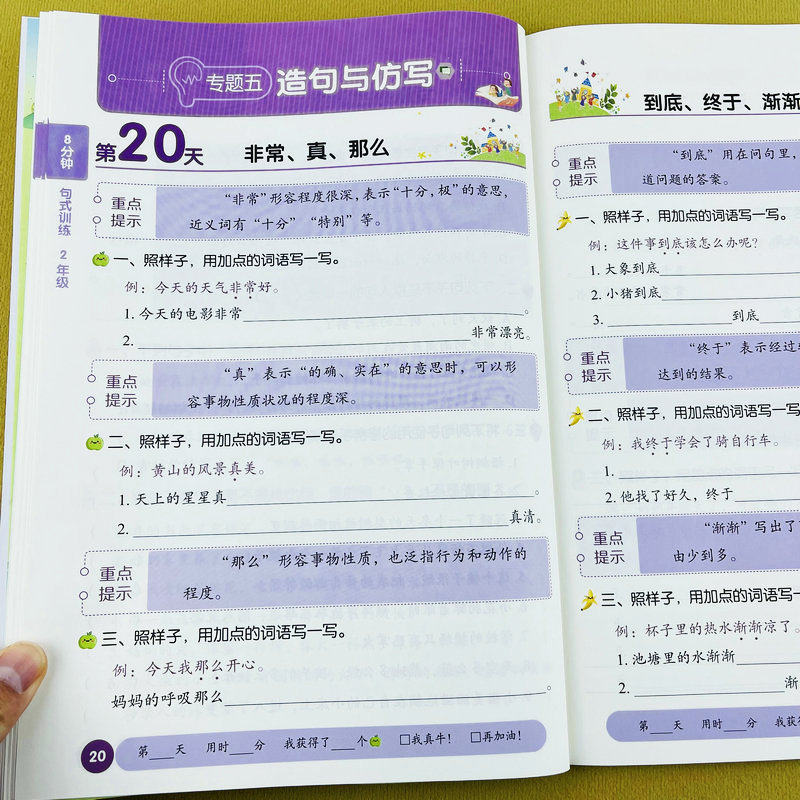 专题五 造句与仿写
8分钟
句式训练 2年级
第20天 非常、真、那么
重点提示
“非常”形容程度很深，表示“十分，极”的意思，
近义词有“十分”“特别”等。
一、照样子，用加点的词语写一写。
例：今天的天气非常好。
1.今天的电影非常____。
2.____非常漂亮。
重点提示
“真”表示“的确、实在”的意思时，可以形
容事物性质状况的程度深。
二、照样子，用加点的词语写一写。
例：黄山的风景真美。
1.天上的星星真____。
2.____真清。
重点提示
“那么”形容事物性质，也泛指行为和动作的
程度。
三、照样子，用加点的词语写一写。
例：今天我那么开心。
妈妈的呼吸那么____。
20
第____天 用时____分 我获得了____个 □我真牛！ □再加油！
到底、终于、渐渐
重点提示
“到底”用在问句里，
道问题的答案。
一、照样子，用加点的词语写一写。
例：这件事到底该怎么办呢？
1.大象到底____
2.小猪到底____
3.____到底____
重点提示
“终于”表示经过
达到的结果。
二、照样子，用加点的词语写一写
例：我终于学会了骑自行车。
1.____
2.他找了好久，终于____
重点提示
“渐渐”写出了
由少到多。
三、照样子，用加点的词语写一
例：杯子里的热水渐渐凉了。
1.池塘里的水渐渐____
2.____渐
第____天 用时____分 我获